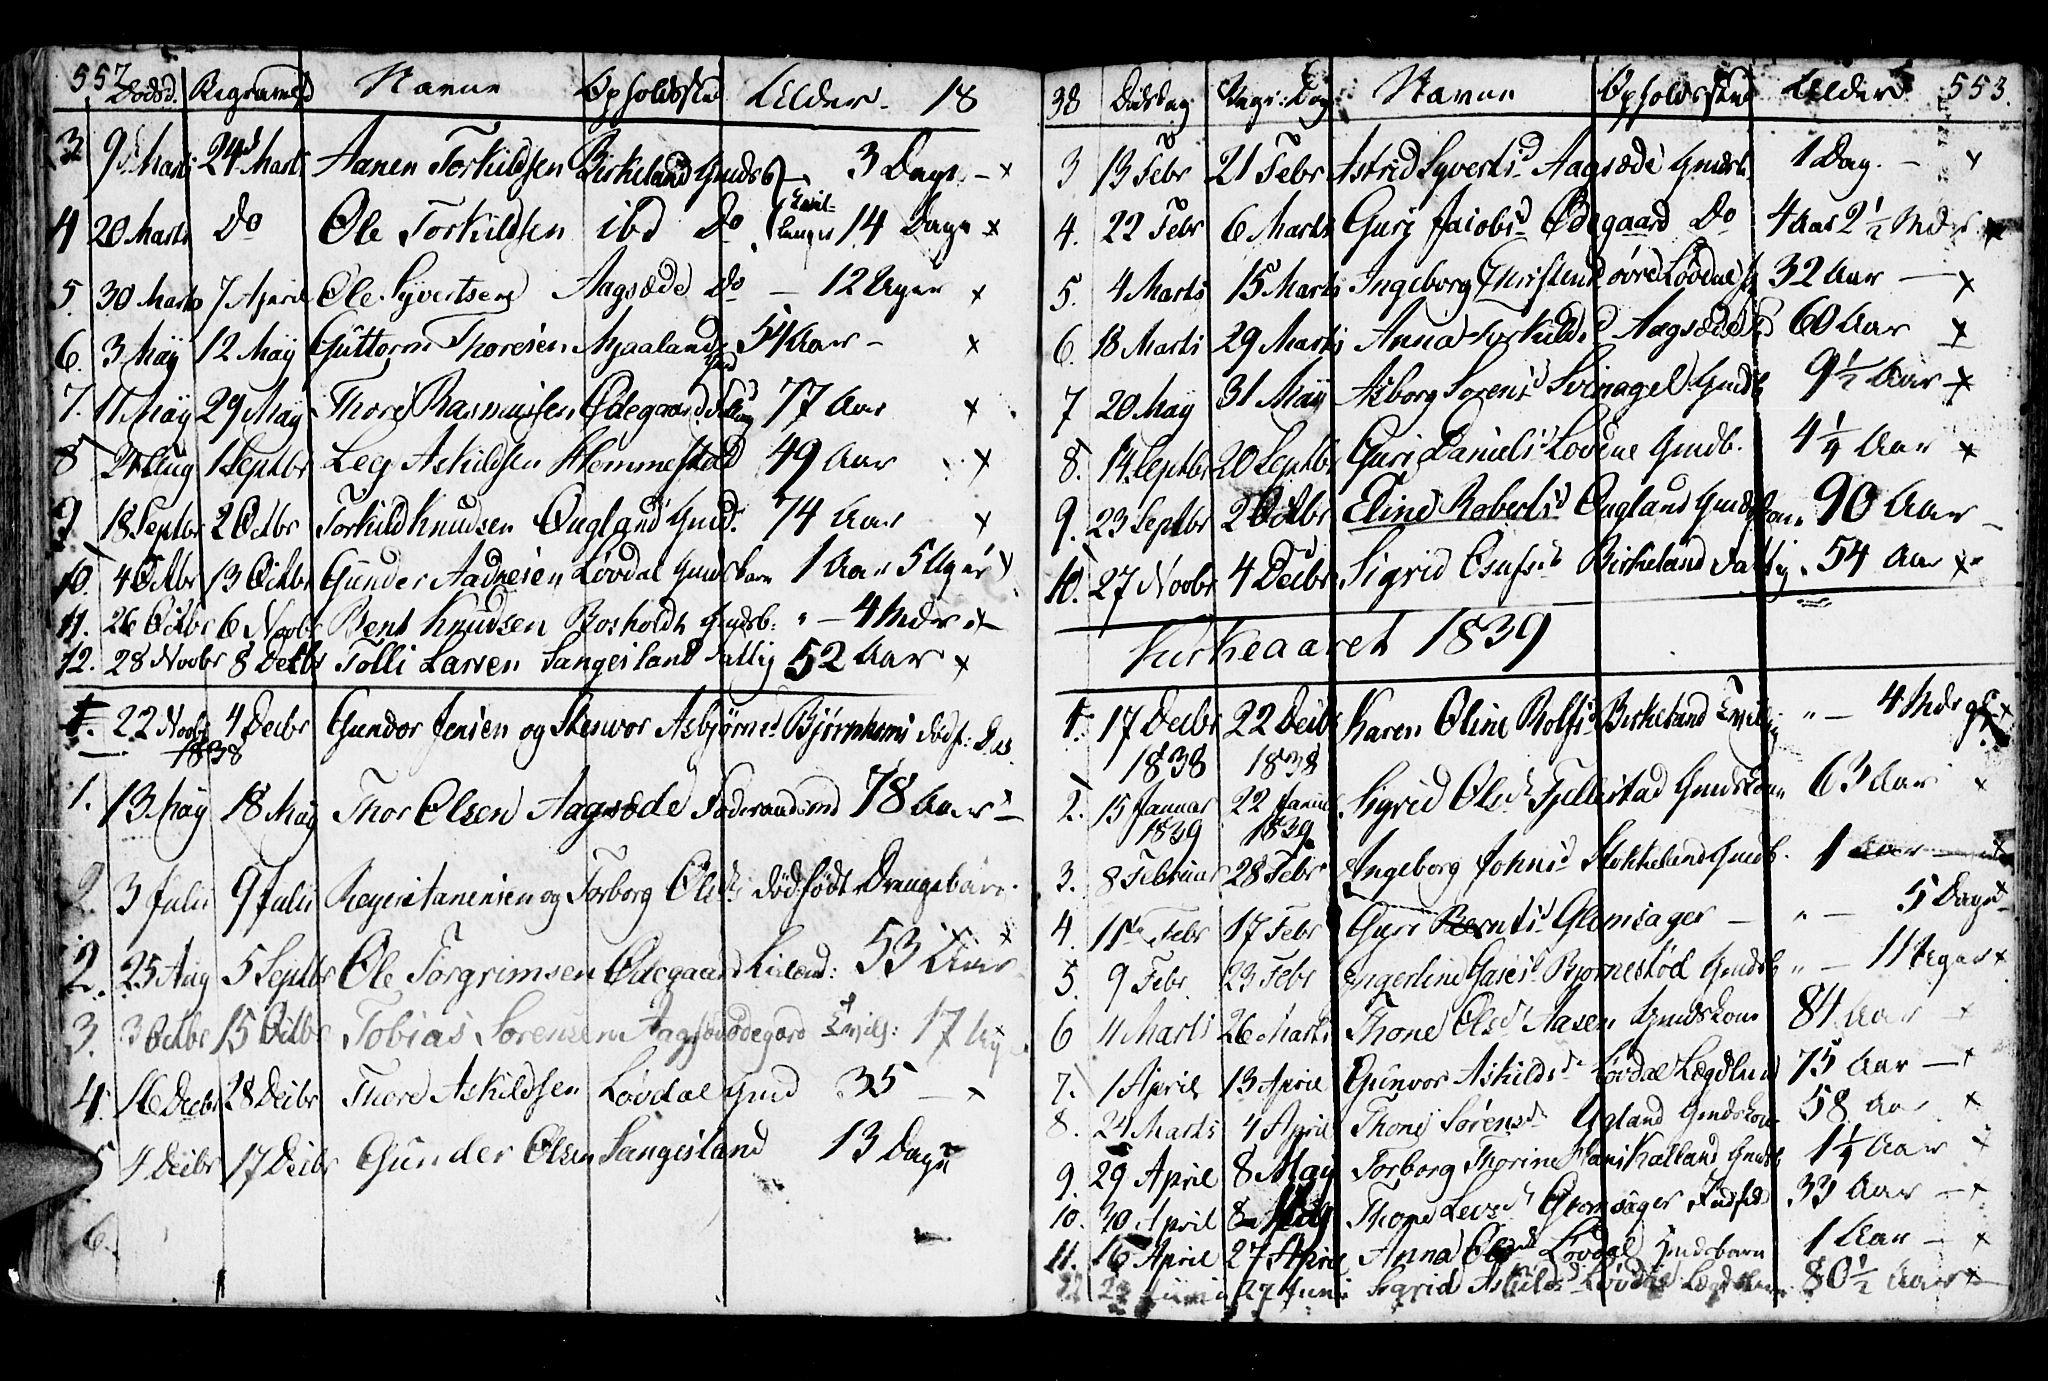 557 Dødsd. Begravels Navne Opholdsste Alder 18
3 9de Marts 24d Marts Aanen Torkildsen Birkeland Gmdsb 3 Dage – x
4 20 Marts Do Ole Torkildsen ibd Do 14 Dage x
5. 30 Marts 7 April Ole Syvertsen Aagsæde Do – 12 Uger x
6. 3 May 12 May Guttorm Thoresen Mjaaland Gmd 54 Aar – x
7. 11 May 29 May Thore Rasmussen Ødegaard 77 Aar x
8 Aug 1 Septbr Leg Askildsen Hemmestad 49 Aar x
9 18 Septbr 2 Octbr Torkild Knudsen Øugland Gmd. 74 Aar x
10. 4 Octbr 13 Octbr Gunder Aadnesen Løvdal Gmdsbarn 1 Aar 5 Uger x
11. 26 Octbr 6 Novbr Bent Knudsen Bosholdt Gmdsb: " – 4 Mdr x
12. 28 Novbr 8 Decbr Tolli Larsen Sangesland Fattig 52 Aar x
1. 22 Novbr 4 Decbr Gundor Jensen og Stenvor Asbjørnsd Bjørnhems dødf:
1838
1. 13 May 18 May Thor Olsen Aagsæde Føderaadsmd 78 Aar x
2. 3 Julii 9 Julii Reyer Tanensen og Torborg Olsd dødfødt Drengebarn
2. 25 Aug 5 Septbr Ole Torgrimsen Ødegaard 53 Aar x
3. 3 Octbr 15 Octbr Tobias Sørensen Aagsødegard 17 Uger
4. 16 Decbr 28 Decbr Thore Askildsen Løvdal Gmd 35 – x
5 4 Decbr 17 Decbr Gunder Olsen Sangesland 13 Dage
6.
38 Dødsdag Begr: Dag Navne Opholdssted Alder 553.
3 13 Febr 21 Febr Astrid Syvertsd Aagsæde Gmdsb 1 Dag. – x
4. 22 Febr 6 Marts Guri Jacobsd Ødegaard Do 4 Aar 2½ Mdr x
5. 4 Marts 15 Marts Ingeborg Christensd øvre Løvdal 32 Aar – x
6. 18 Marts 29 Marts Anna Torkildsd Aagsæde 60 Aar x
7 20 May 31 May Asborg Sorensd Svinagel Gmdsb 9½ Aar x
8. 14 Septbr 20 Septbr Guri Danielsd Lovdal Gmdb. 4¼ Aar x
9. 23 Septbr 2 Octbr Eline Robertsd Øugland Gmdskone 90 Aar –
10. 27 Novbr 4 Decbr Sigrid Osufsd Birkeland Fattig 54 Aar x
Kirkeaaret 1839
1. 17 Decbr 22 Decbr Karen Oline Rolfsd Birkeland " – 4 Mdr gl. x
1838 1838
2. 15 Januar 22 Januar Sigrid Olsd Fjellestad Gmdskone 63 Aar x
1839 1839
3. 8 Februar 28 Febr Ingeborg Johnsd Stokkeland Gmdb. 1 Aar – x
4. 11te Febr 17 Febr Guri Berntsd Glomsager – " – 5 Dage x
5. 9 Febr 23 Febr Ingerline Bjørnestød Gmdsb " – 11 Uger x
6 4 Marts 26 Marts Thone Olsd Aasen Gmdskone 84 Aar – x
7. 1 April 13 April Gunvor Askildsd Løvdal Lægdslem 75 Aar – x
8. 24 Marts 4 April Thone Sørensd Ugland Gmdskone 58 Aar x
9. 29 April 8 May Torborg Thorine Hansd Kalland Gmdsb 1¼ Aar x
10. 30 April 8 May Thone Levsd Glomsager Indsid 33 Aar – x
11. 16 April 27 April Anna Olsd Løvdal Gmdsbarn 1 Aar – x
12 Juni 27 Juni Sigrid Askildsd Løvdal Lægdslem 80½ Aar x